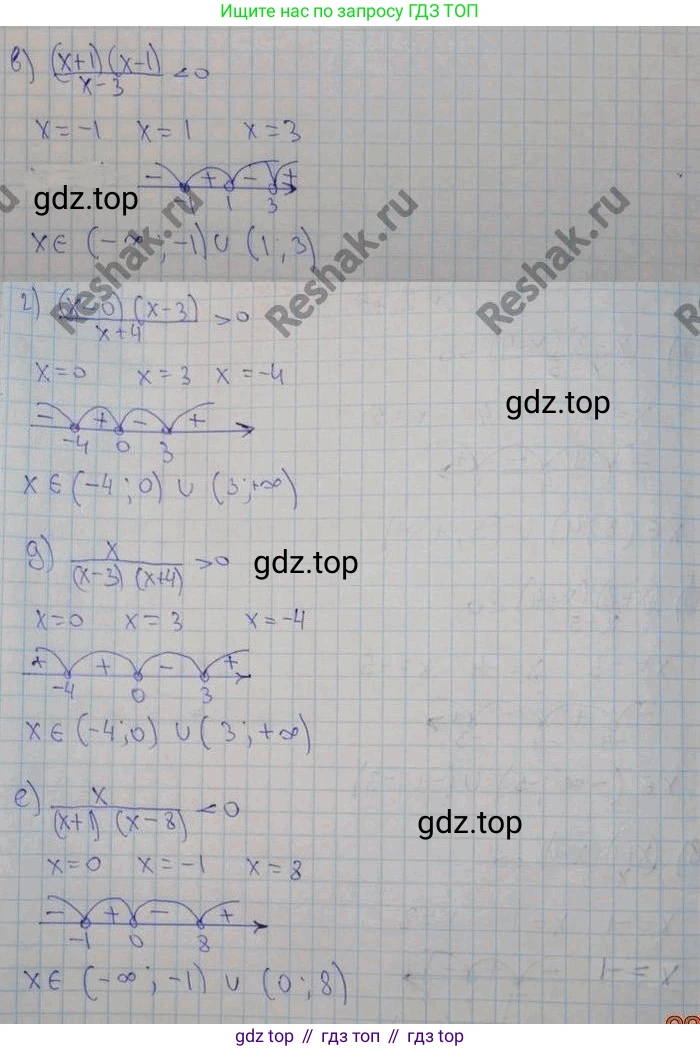 Ищите нас в поиске по запросу ГДЗ ТОП
в) (x+1)(x-1)/x-3 <0
x=-1 x=1 x=3
- + - +
gdz.top
1 3
x∈ (-∞; -1) ∪ (1; 3)
Reshak.ru
Reshak.ru
Reshak.ru
г) (x-0)(x-3)/x+4 >0
x=0 x=3 x=-4
gdz.top
- + - +
-4 0 3
x∈(-4; 0) ∪ (3; +∞)
д) x/(x-3)(x+4) >0
gdz.top
x=0 x=3 x=-4
+ - +
-4 0 3
x∈(-4; 0) ∪ (3; +∞)
е) x/(x+1)(x-8) <0
gdz.top
x=0 x=-1 x=8
- + - +
-1 0 8
x∈ (-∞; -1) ∪ (0; 8)
gdz.top // гдз топ // gdz.top // гдз топ // gdz.top